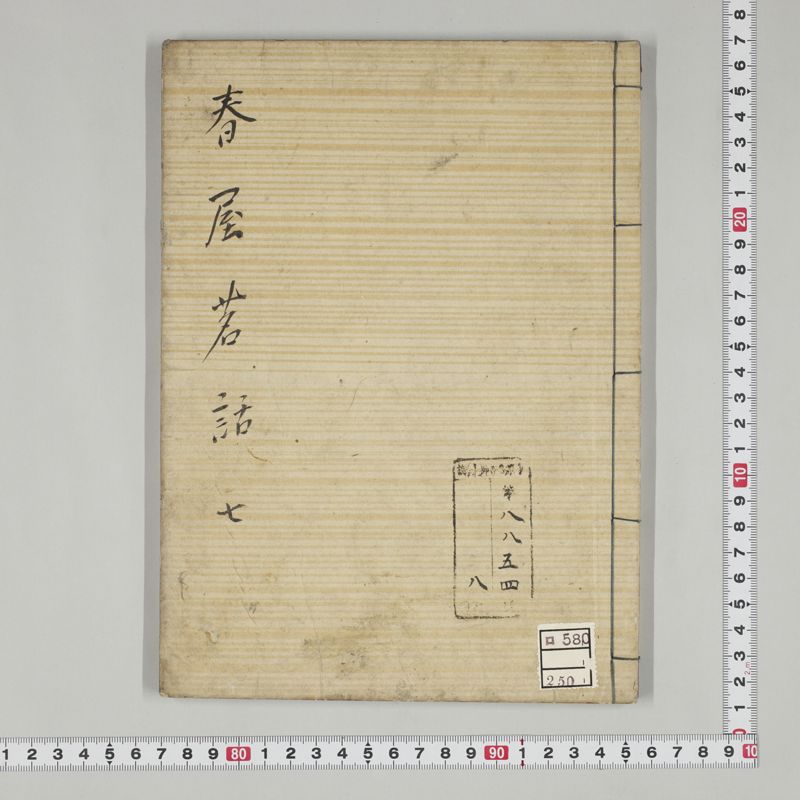 春屋茗話 七
第八八五四
八
ロ 580
1
250 1
8
7
6
5
4
3
2
1
20
9
8
7
6
5
4
3
2
1
10
9
8
7
6
5
4
3
2
1
2m
1 2 3 4 5 6 7 8 9 80 1 2 3 4 5 6 7 8 9 90 1 2 3 4 5 6 7 8 9 10